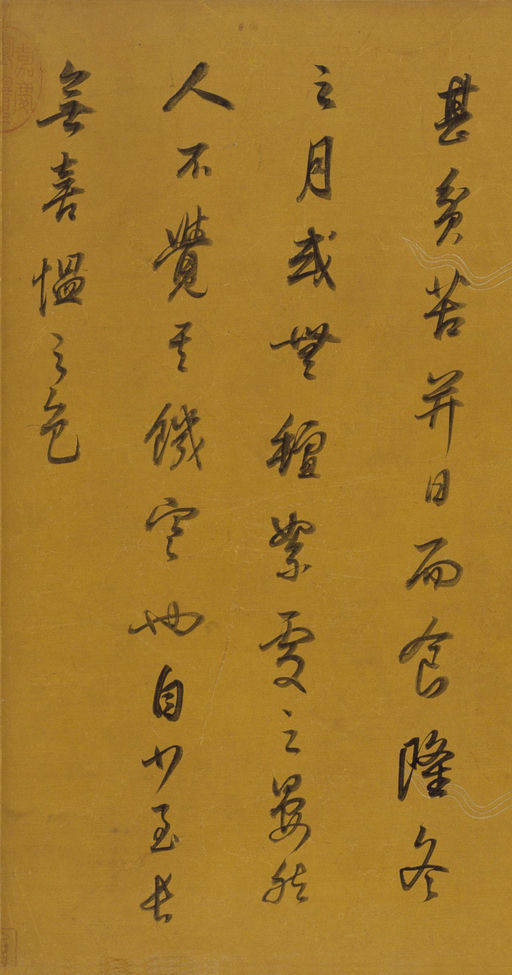 甚貧苦并日而食隆冬
之月或無氊絮處之晏然
人不覺其饑寒也自少至長
無喜慍之色